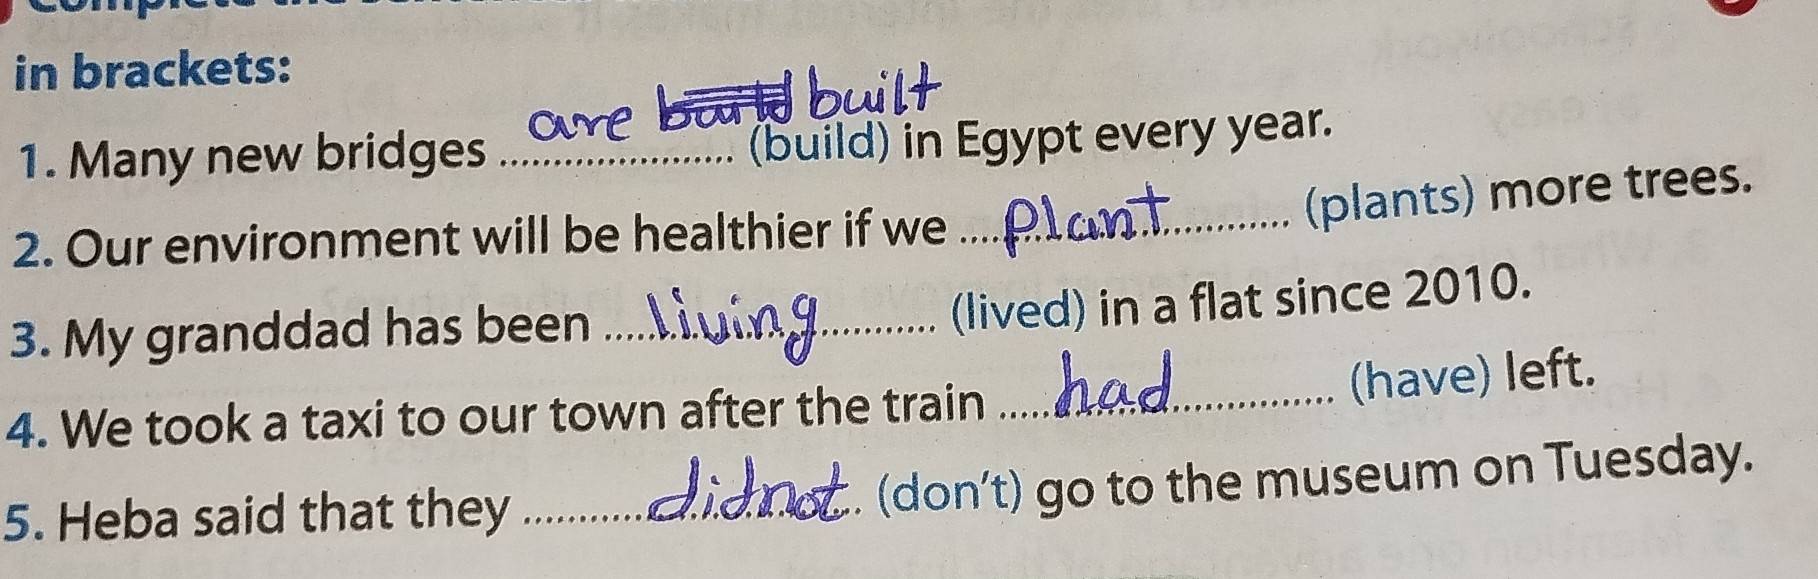 in brackets:
are built
1. Many new bridges ........................ (build) in Egypt every year.
2. Our environment will be healthier if we .... plant ............ (plants) more trees.
3. My granddad has been ..... living ............ (lived) in a flat since 2010.
4. We took a taxi to our town after the train ..... had ............... (have) left.
5. Heba said that they ............ didnot .. (don't) go to the museum on Tuesday.